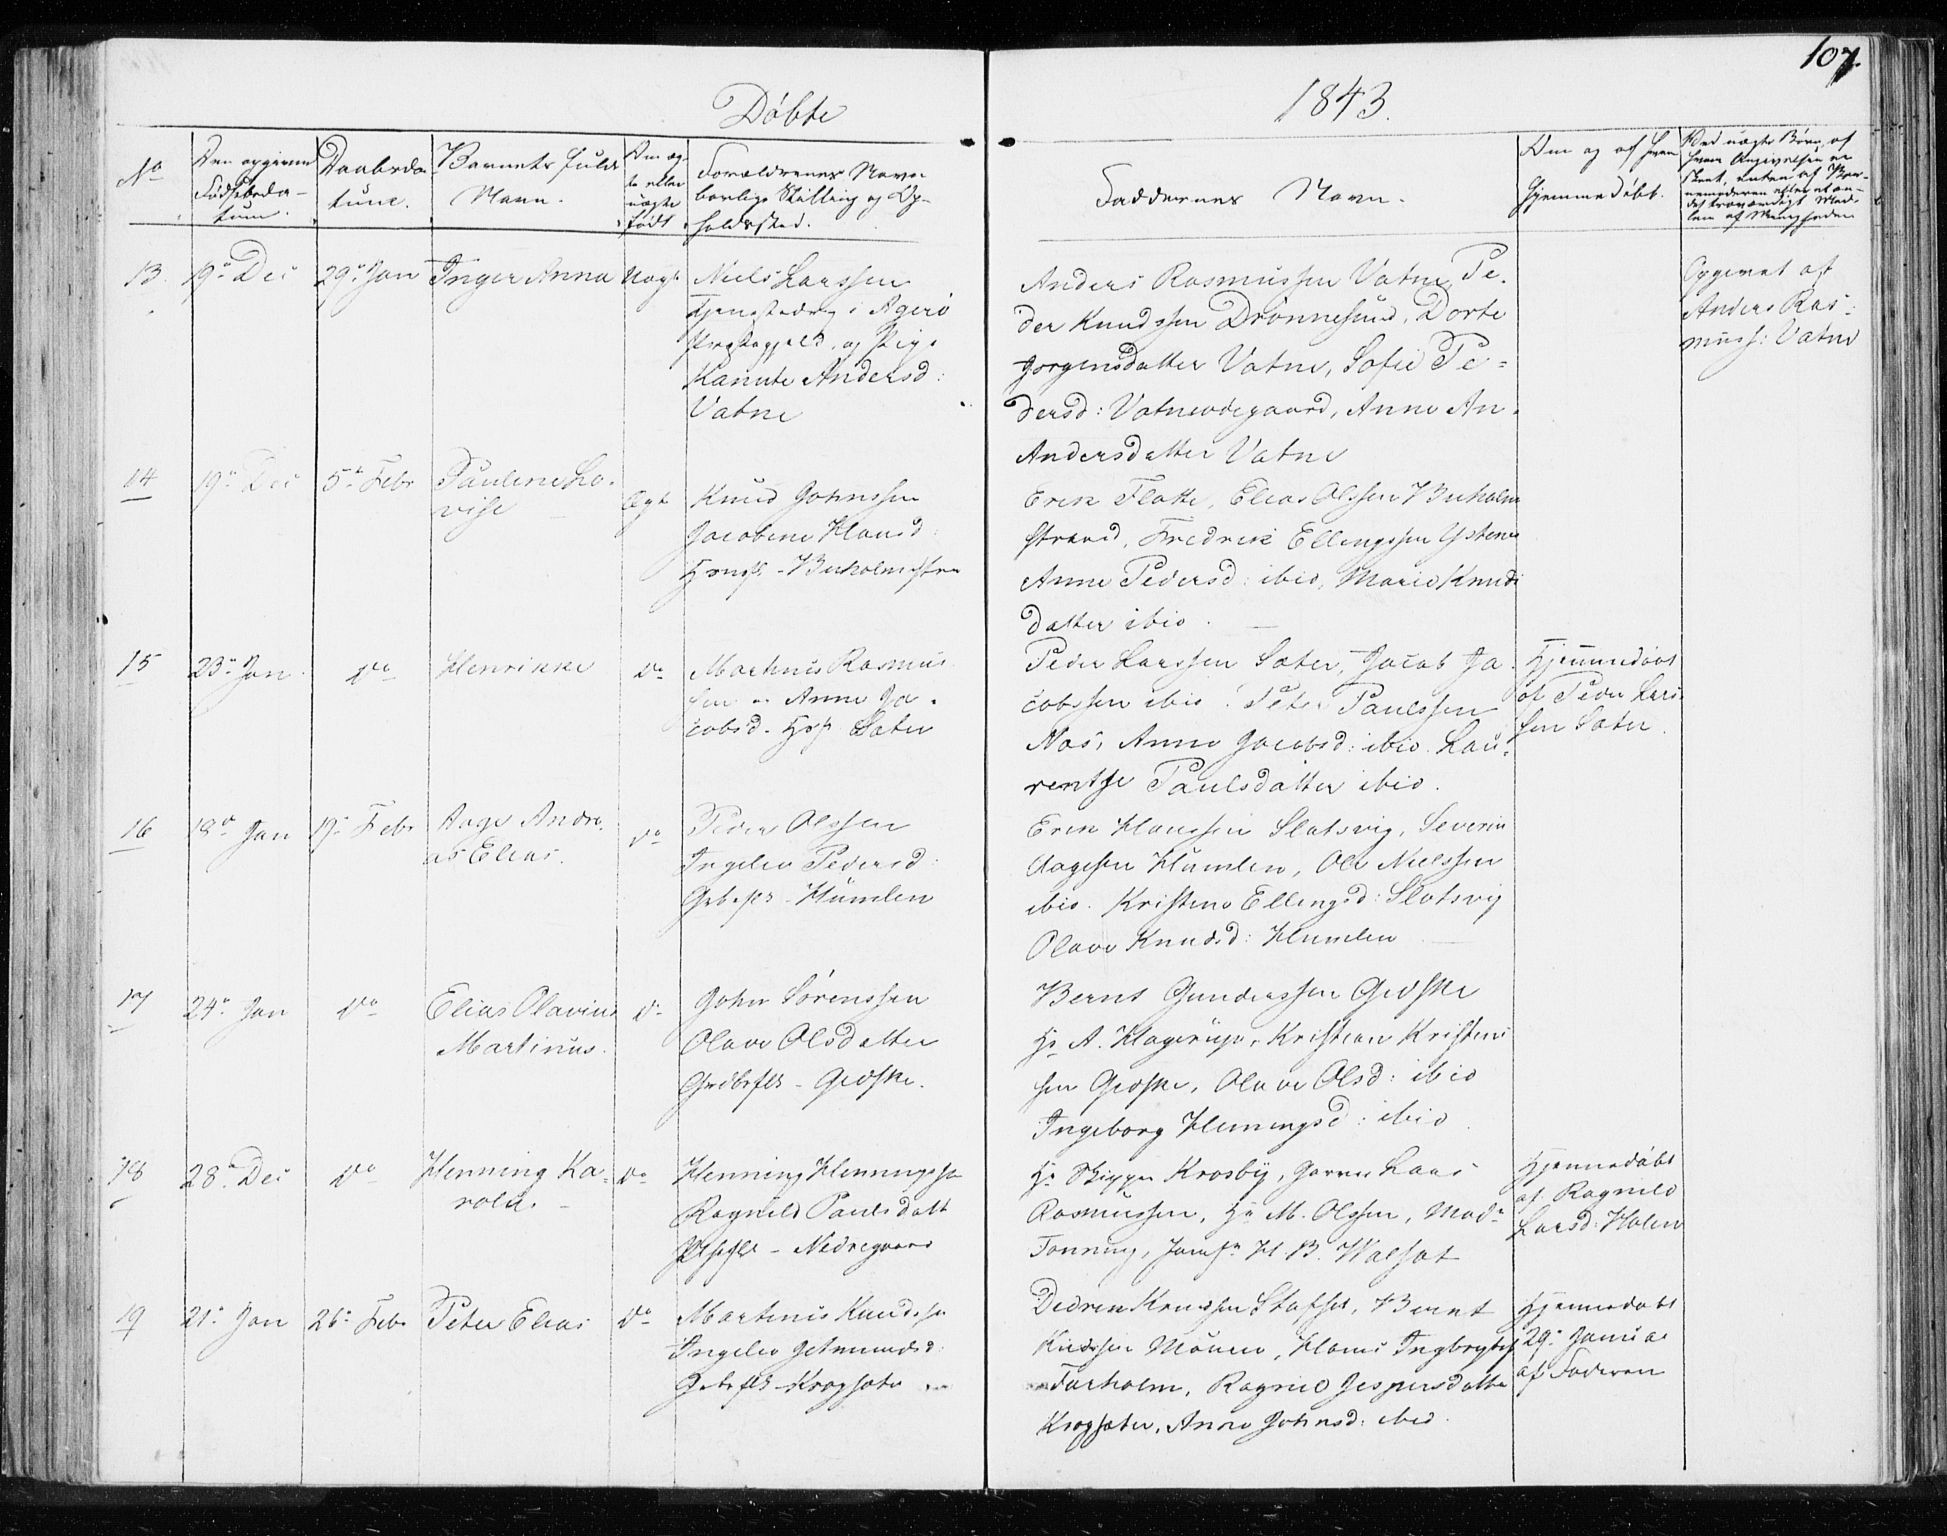 107.
Døbte
1843.
No
Den opgivne
Fødselsda-
tum.
Daabsda-
tum.
Barnets fulde
Navn.
Om æg-
te eller
uægte
født
Forældrenes Navn
borlige Stilling og Op-
holdssted.
Faddernes Navn.
Om og af hvem
hjemmedøbt.
Ved uægte Børn, af
hvem Angivelsen er
skeet, enten af Bar-
nemoderen eller et an-
det troværdigt Med-
lem af Menigheden
13. 19de Dec 29de Jan Inger Anna Uægt
Niels Larssen
Tjenestedreng i Agerø
Præstegjeld, og Pige
Kanute Andersd:
Vatne
Anders Rasmussen Vatne, Pe-
der Knudssen Drønnesund, Dorte
Jørgensdatter Vatne, Sofie Pe-
dersd: Vatneødegaard, Anne An-
Andersdatter Vatne
Opgivet af
Anders Ras-
muss: Vatne
14 19de Dec 5te Febr Pauline Lo-
vise
Ægt
Knud Johnssen
Jacobine Hansd:
Huusf. - Buholmstran
Erik Flatte, Elias Olssen Buholm
strand, Fredrik Ellingssen Ystenes
Anne Pedersd: ibid, Marie Knuds
datter ibid.
15 23de Jan. do Henrikke do
Martinus Rasmus
sen og Anne Ja-
cobsd. Sæter
Peder Larssen Sæter, Jacob Ja-
cobssen ibid. Peter Paulssen
Nos, Anne Jacobsd: ibid. Lau-
rentse Paulsdatter ibid.
Hjemmedøbt
af Peder Lars
sen Sæter.
16 18de Jan 19de Febr Aage Andre-
as Elias. do
Peder Olssen
Ingelev Pedersd:
Gbrflk - Humlen
Erik Hanssen Slotsvig, Severin
Aagesen Humlen, Ole Nielssen
ibid. Kristine Ellingsd: Slotsvig
Olave Knudsd: Humlen
17 24de Jan do Elias Olavius
Martinus. do
Johan Sørenssen
Olave Olsdatter
Grdbrflk - Gjøske.
Bernt Gunderssen Gjøske
Hr A. Hagerup, Kristian Kristens
sen Gjøske, Olave Olsd: ibid
Ingeborg Henningsd: ibid.
18 28de Dec do Henning Ka-
rolus. do
Henning Henningssen
Ragnild Paulsdatt
Nedregaard
Hr Skipper Krosby, Garver Laas
Rasmussen, Hr M. Olssen, Madm
Tonning, Jomfr H. B. Walset
Hjemmedøbt
af Ragnild
Larsd: Holen
19 21de Jan 26de Febr Peter Elias do
Martinus Knudssen
Ingelev Getmundsd:
Gbrflk - Krogsæter
Knudssen Stafset, Bernt
Knudssen Mouen, Hans Ingebrigts
Furholm, Ragnild Jespersdatter
Krogsæter, Anne Johnsd: ibid.
Hjemmedøbt
29de Januar
af Faderen